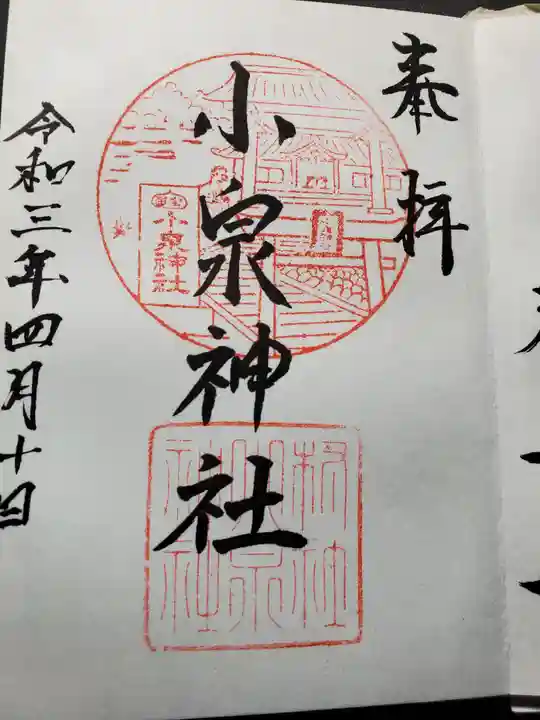 奉拝
小泉神社
令和三年四月十日
小泉神社
村社
小泉
神社